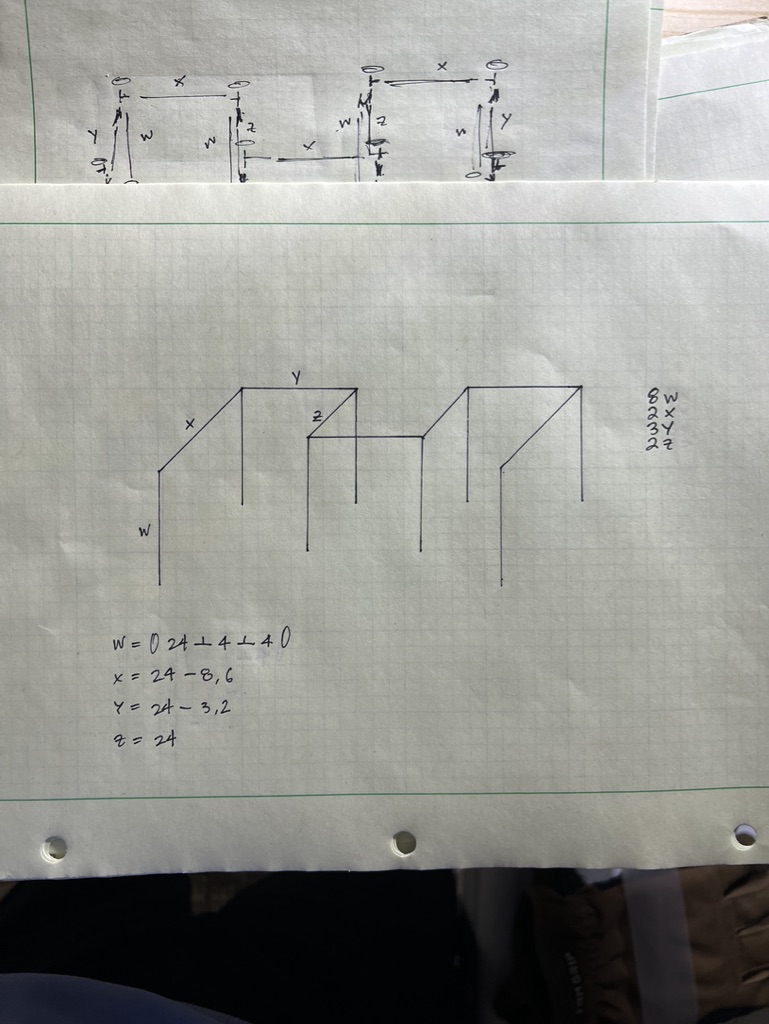 X
X
Y
W
W
Z
W
Z
W
Y
X
Y
X
Z
W
8W
2X
3Y
2Z
W = 0 24 ⊥ 4 ⊥ 4 0
X = 24 - 8,6
Y = 24 - 3,2
Z = 24